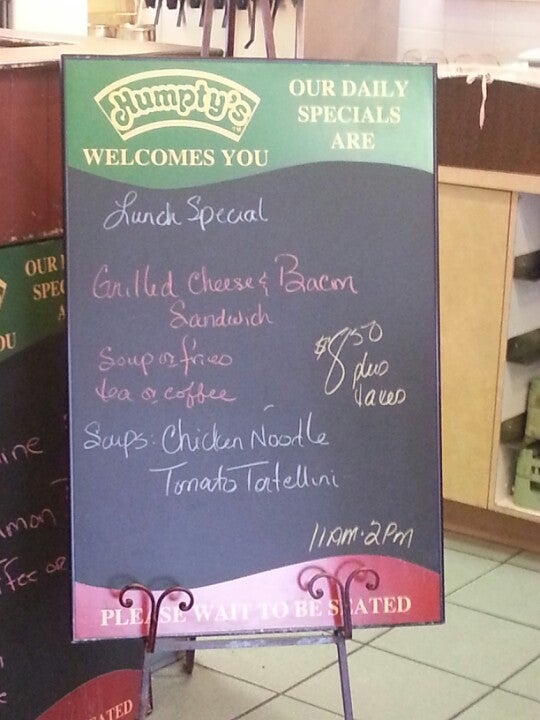 Humpty's
WELCOMES YOU
OUR DAILY
SPECIALS
ARE
Lunch Special
Grilled Cheese & Bacon
Sandwich
Soup or fries
tea or coffee
$8.50
plus
taxes
Soups: Chicken Noodle
Tomato Tortellini
11AM-2PM
PLEASE WAIT TO BE SEATED
OUR
SPEC
OU
ine
mon
ffee or
ATED